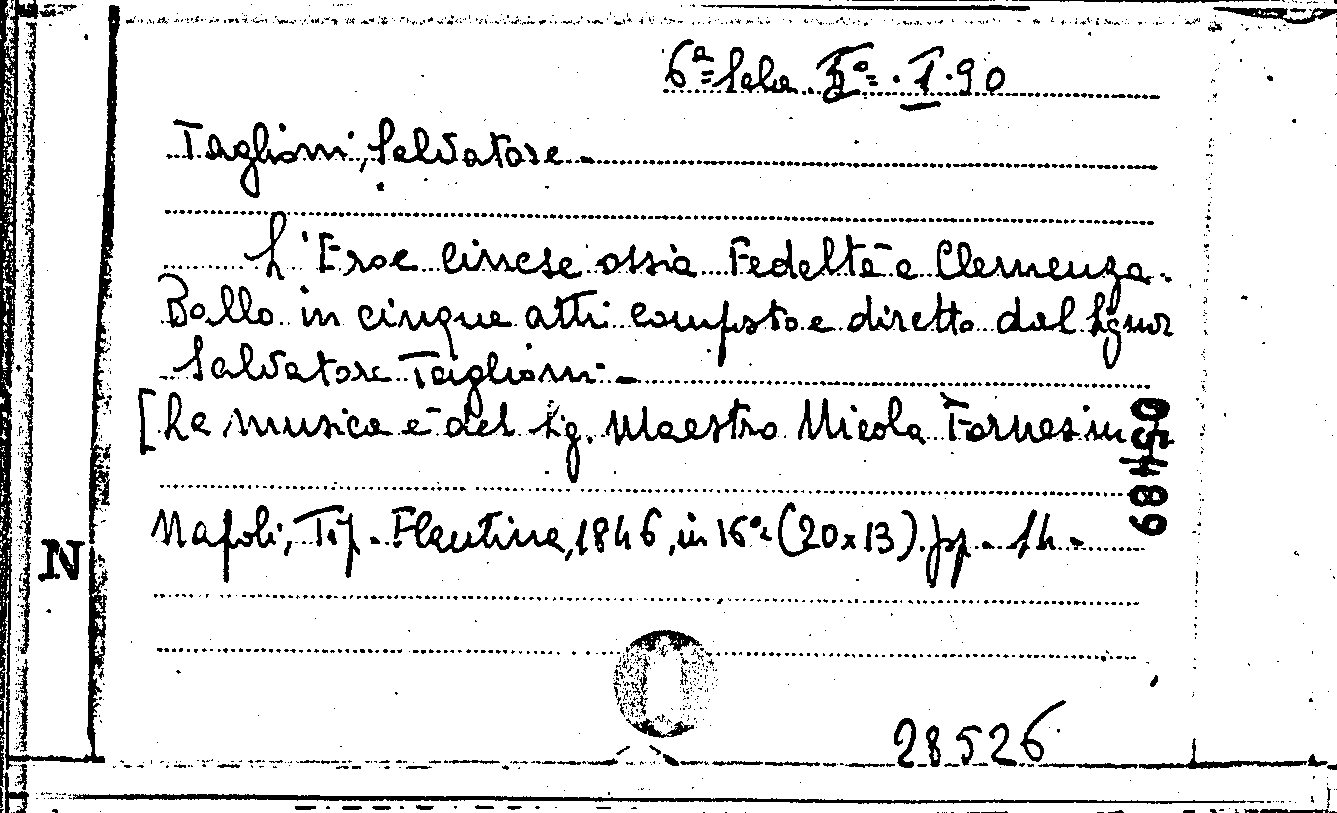 6ª Sala. I. 90
Taglioni, Salvatore.
L'Eroe cinese ossia Fedeltà e Clemenza.
Ballo in cinque atti composto e diretto dal Signor
Salvatore Taglioni.
[La musica è del Sig. Maestro Nicola Fornasini]
Napoli, Tip. Flautina, 1846, in 16º (20x13). pp. 14.
N
68450
28526